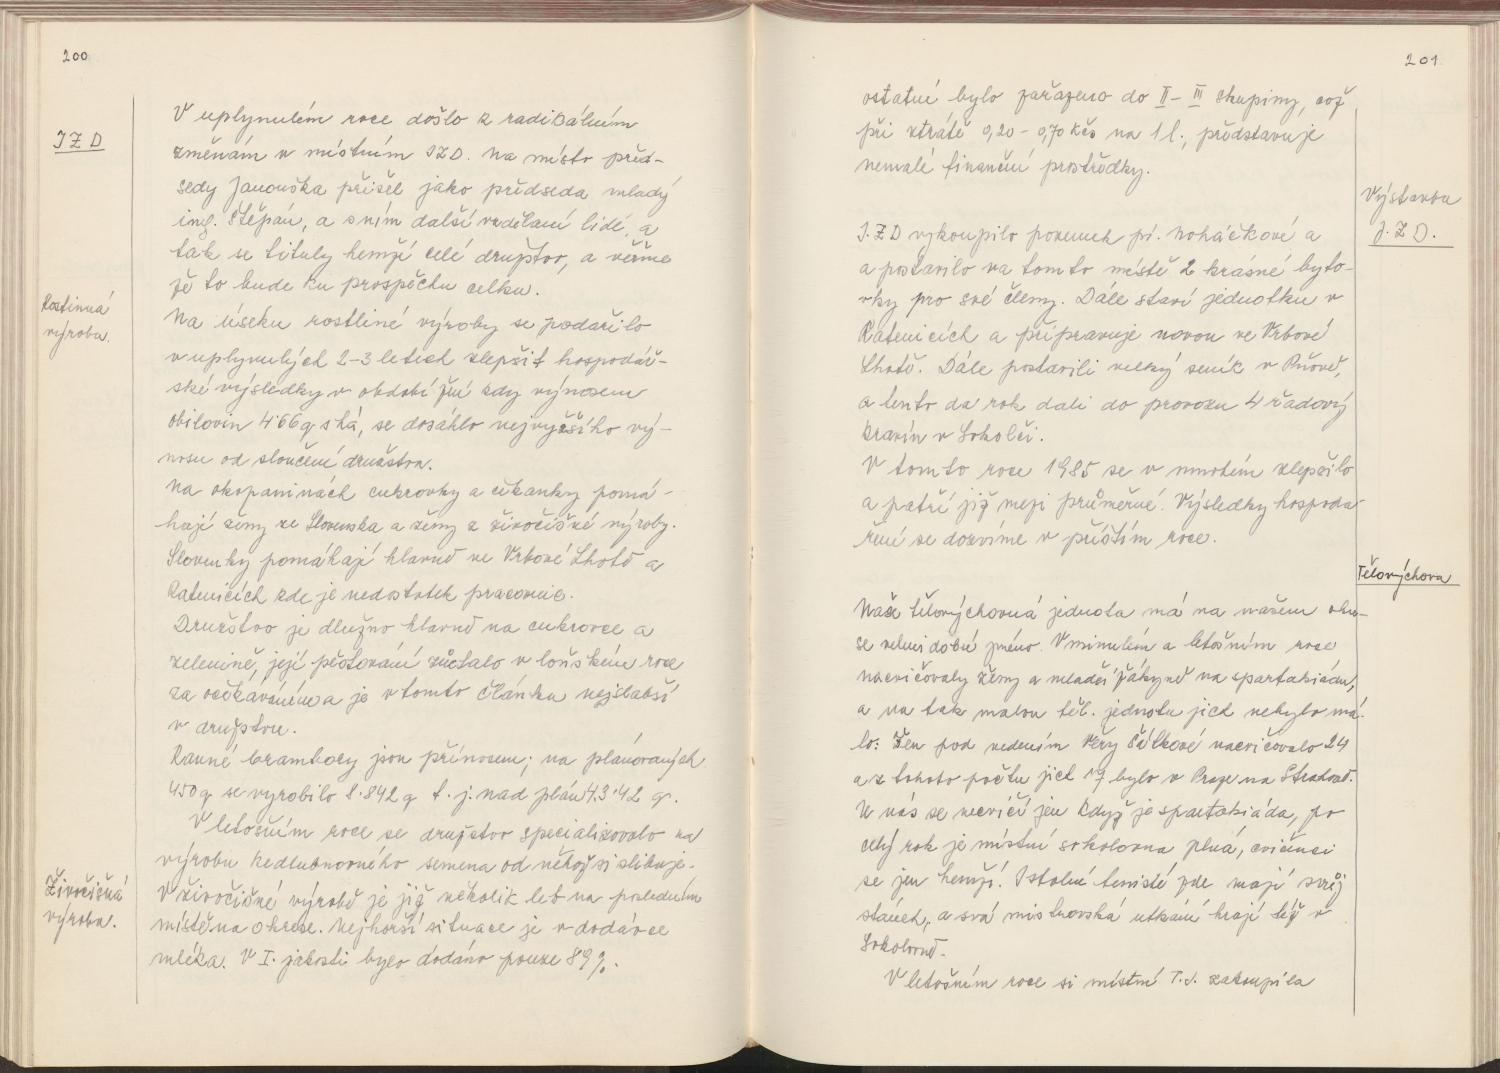 200
JZD
V uplynulém roce došlo k radikálním
změnám v místním JZD. Na místo před-
sedy Janouška přišel jako předseda mladý
ing. Štěpán, a s ním další vzdělaní lidé, a
tak se tituly hemží celé družstvo, a věřme
že to bude ku prospěchu celku.
Rostlinná
výroba.
Na úseku rostliné výroby se podařilo
v uplynulých 2-3 letech zlepšit hospodář-
ské výsledky v období žní kdy výnosem
obilovin 4'66q s há, se dosáhlo nejvyššího vý-
nosu od sloučení družstva.
Na okopaninách cukrovky a čekanky pomá-
hají ženy ze Slovenska a ženy z živočišné výroby.
Slovenky pomáhají hlavně ve Vrbové Lhotě a
Ratenicích kde je nedostatek pracovnic.
Družstvo je dlužno hlavně na cukrovce a
zelenině, její pěstování zůstalo v loňském roce
za očekáváním a je v tomto článku nejslabší
v družstvu.
Ranné brambory jsou přínosem; na plánovaných
450q se vyrobilo 8.842q t.j. nad plán 43'42 q.
V letošním roce se družstvo specializovalo na
výrobu kedlubnového semena od něhož si slibuje.
Živočišná
výroba.
V živočišné výrobě je již několik let na posledním
místě na okrese. Nejhorší situace je v dodávce
mléka. V I. jakosti bylo dodáno pouze 89%.
201
ostatní bylo zařazeno do II-III skupiny, což
při ztrátě 0,20 - 0,70 Kčs na 1 l., představuje
nemalé finanční prostředky.
Výstavba
J.Z.D.
J.ZD vykoupilo pozemek pí. Noháčkové a
a postavilo na tomto místě 2 krásné byto-
vky pro své členy. Dále staví jednotku v
Ratenicích a připravuje novou ve Vrbové
Lhotě. Dále postavili velký seník v Pňově,
a tento da rok dali do provozu 4 řadový
kravín v Sokolči.
V tomto roce 1985 se v mnohém zlepšilo
a patří již mezi průměrné. Výsledky hospoda-
ření se dozvíme v příštím roce.
Tělovýchova
Naše tělovýchovná jednota má na našem okre-
se velmi dobré jméno. V minulém a letošním roce
nacvičovaly ženy a mladší žákyně na spartakiádu,
a na tak malou těl. jednotu jich nebylo má-
lo: Žen pod vedením Věry Šítkové nacvičovalo 24
a z tohoto počtu jich 17 bylo v Praze na Strahově.
U nás se necvičí jen když je spartakiáda, po
celý rok je místní sokolovna plná, cvičenci
se jen hemží. I stolní tenisté zde mají svůj
stánek, a svá mistrovská utkání hrají též v
Sokolovně.
V letošním roce si místní T.J. zakoupila